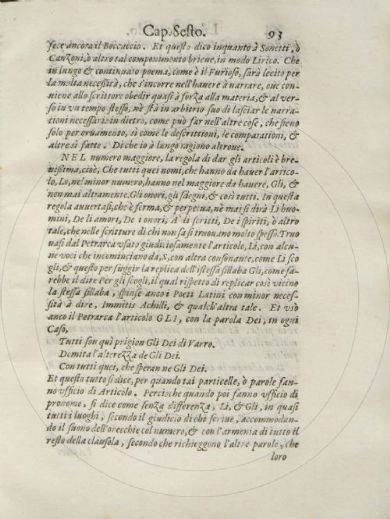 Cap. Sesto. 93
fece ancora il Boccaccio. Et questo dico inquanto à Sonetti, ò
Canzoni, ò altro tal componimento brieue, in modo Lirico. Che
in lungo & continuato poema, come è il Furioso, sarà lecito per
la molta necessità, che s'incorre nell'hauere à narrare, oue con
uiene allo scrittore obedir quasi à forza alla materia, & al ver-
so in vn tempo stesso, nè stà in arbitrio suo di lasciar le narra-
tioni necessarie in dietro, come può far nell'altre cose, che sieno
solo per ornamento, sì come le descrittioni, le comparationi, &
altre sì fatte. Di che io à lungo ragiono altroue.
NEL numero maggiore, la regola di dar gli articoli è bre-
uissima, cioè, Che tutti quei nomi, che hanno da hauer l'artico-
lo, Lo, nel minor numero, hanno nel maggiore da hauere, Gli, &
non mai altramente. Gli onori, gli sdegni, & così tutti. In questa
regola auuertasi, che è ferma, & perpetua, nè mai si dirà Li huo-
mini, De li amori, De i onori, A' li scritti, De i spiriti, ò altro
tale, che nelle scritture di chi non sa si truouano molto spesso. Truo
uasi dal Petrarca vsato giudiciosamente l'articolo, Li, con alcu-
ne voci che incominciano da, S, con altra consonante, come Li sco
gli, & questo per fuggir la replica dell'istessa sillaba Gli, come sa-
rebbe il dire Per gli scogli, il qual rispetto di replicar così vicino
la stessa sillaba, spinse anco i Poeti Latini con minor neces-
sità à dire, Immitis Achilli, & qualch'altra tale. Et vsò
anco il Petrarca l'articolo GLI, con la parola Dei, in ogni
Caso,
Tutti son qui prigion Gli Dei di Varro.
Demita l'altrezza de Gli Dei.
Con tutti quei, che speran ne Gli Dei.
Et questo tutto si dice, per quando tai particelle, ò parole fan-
no vfficio di Articolo. Percioche quando poi fanno vfficio di
pronome, si dice come senza differenza, Li, & Gli, in quasi
tutti i luoghi, secondo il giudicio di chi scriue, accommodan-
do il suono dell'orecchie col numero, & con l'armonia di tutto il
resto della clausola, secondo che richieggono l'altre parole, che
loro